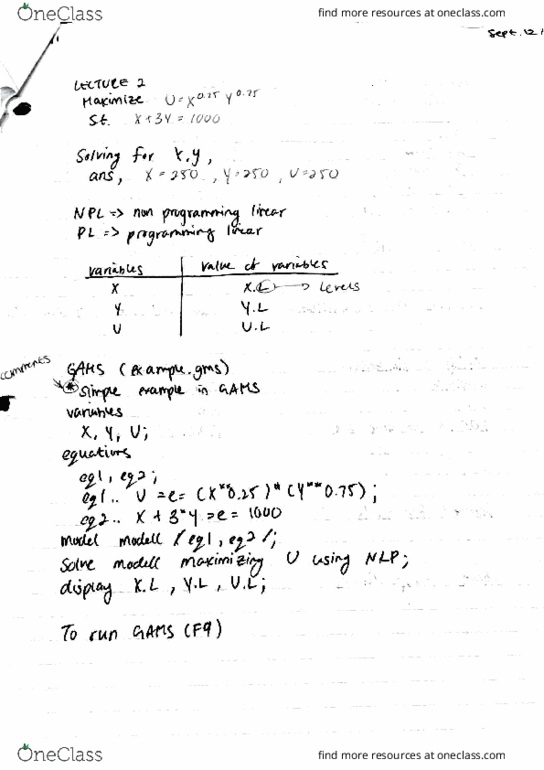 OneClass
find more resources at oneclass.com
Sept. 12/
LECTURE 2
Maximize U = X^0.25 Y^0.75
St. X + 3Y = 1000
Solving for X, Y,
ans, X = 250, Y = 250, U = 250
NPL => non programming linear
PL => programming linear
variables | value of variables
X | X.L → Levels
Y | Y.L
U | U.L
GAMS (example.gms)
comments
* simple example in GAMS
variables
X, Y, U;
equations
eq1, eq2;
eq1.. U =e= (X**0.25)*(Y**0.75);
eq2.. X + 3*Y =e= 1000
model model1 /eq1, eq2/;
Solve model1 maximizing U using NLP;
display X.L, Y.L, U.L;
To run GAMS (F9)
OneClass
find more resources at oneclass.com